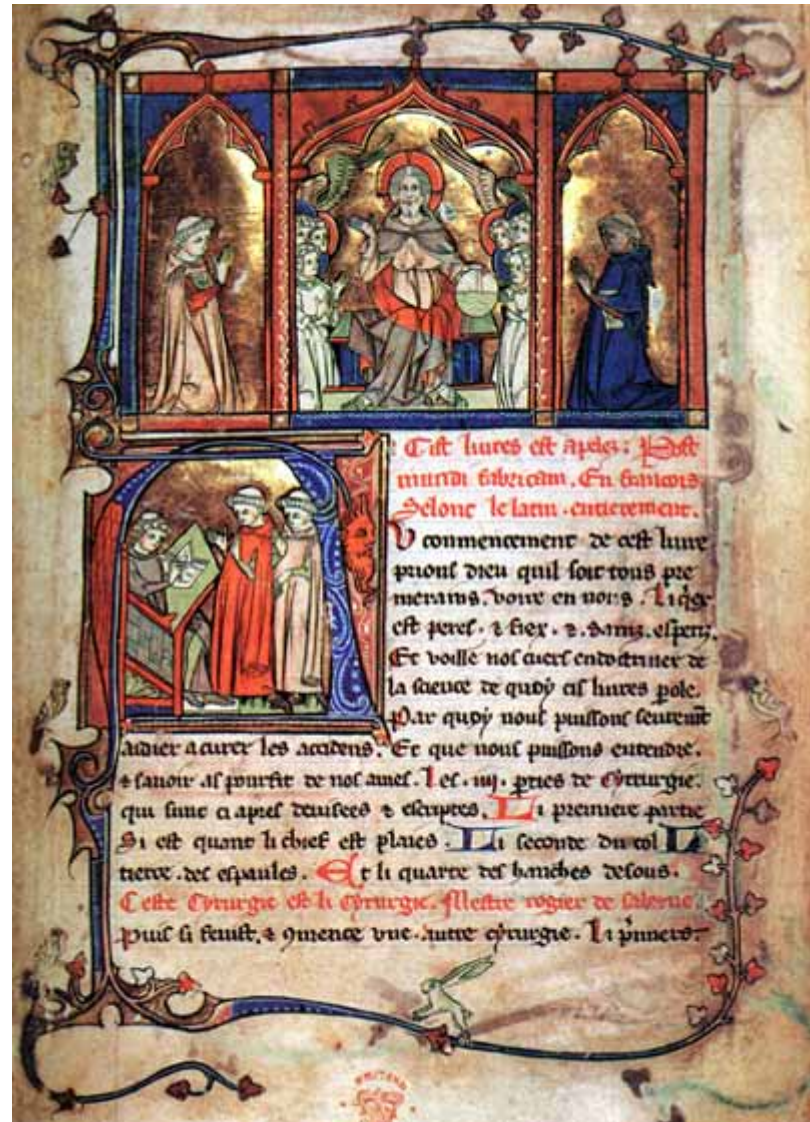 Cist livres est apelez: Post
mundi fabricam. En francois
Selonc le latin. entierement.
U commencement de cest livre
prions dieu quil soit tous pre
merains. voire en nous. Li qex
est peres. & fiex. & sainz. esperiz.
Et voille nos cuers endoctriner de
la science de quoy cis livres pole.
Par quoy nous puissons seurement
aidier a curer les accidens. Et que nous puissons entendre.
& savoir as pourfit de nos ames. Les. iiij. pties de cyrurgie.
qui sunt ci apres devisees & escriptes. Li premiere partie
Si est quant li chief est plaies. Li seconde du col L
tierce. des espaules. Et li quarte des hanches desous.
Ceste Cyrurgie est li cyrurgie. Mestre rogier de salerne.
Puis si seust. & 9mence une. autre cyrurgie. Li pmiers.